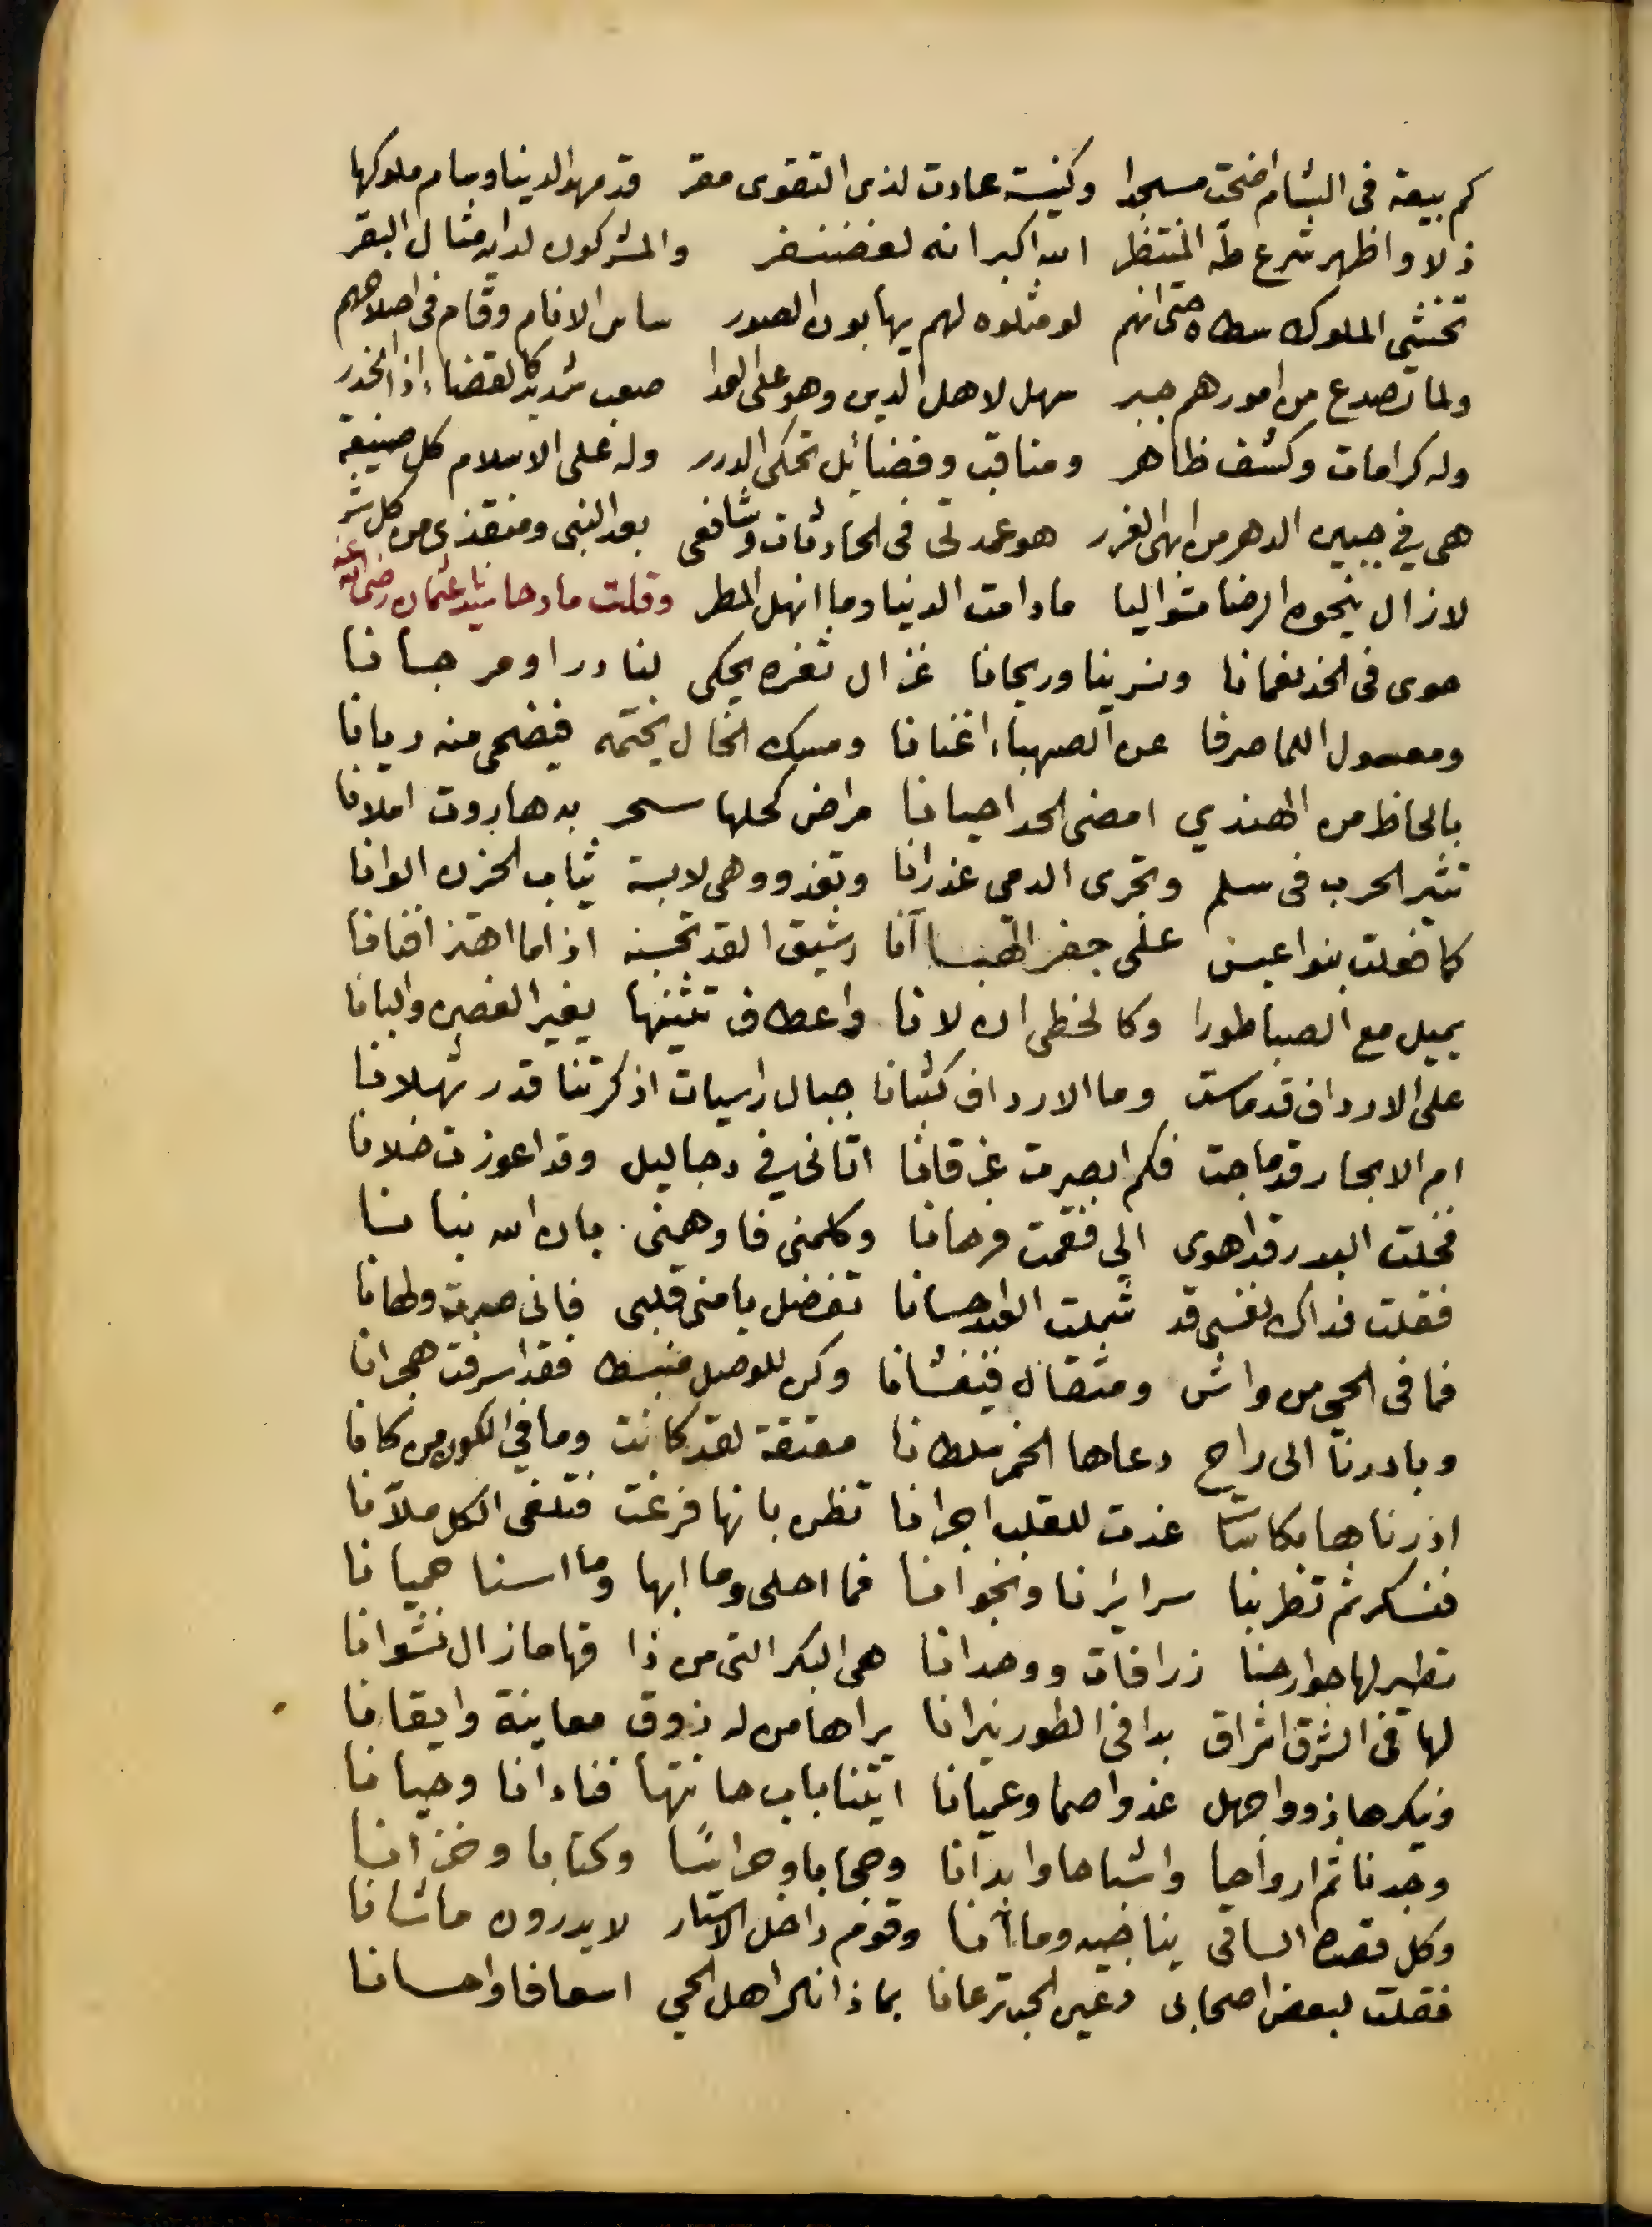 كم بيعة في الشام اضحت مسجدا وكنيسة عادت لذي التقوى مقر قد مهد الدنيا وسام ملوكها
ذلا واظهر شرع طه المنتظر الله اكبر انه لغضنفر والمشركون لدا به مثال البقر
تخشى الملوك سطاه حتى انهم لو مثلوه لهم يهابون الصور ساس الانام وقام في اصلاحهم
ولما تصدع من امورهم جبر سهل لاهل الدين وهو على العدا صعب شديد كالقضاء اذا انحدر
وله كرامات وكشف ظاهر ومناقب وفضائل تحكي الدرر وله على الاسلام كل صنيعة
هي في جبين الدهر من ابهى الغرر هو عمدتي في الحادثات وشافعي بعد النبي ومنقذي من كل شر
لازال ينحوه الرضا متواليا مادامت الدنيا وما انهل المطر وقلت مادحا سيدنا عثمان رضي الله عنه
حوى في الخد نعمانا ونسرينا وريحانا غزال ثغره يحكي لنا درا ومرجانا
ومعسول اللما صرفا عن الصهباء اغنانا ومسك الخال يختمه فيضحى منه ريانا
بالحاظ من الهندي امضى الحد احيانا مراض كحلها سحر به هاروت املانا
تثير الحرب في سلم وتجري الدمع غدرانا وتغدو وهي لابسة ثياب الحزن الوانا
كما فعلت بنوا عبس على جفر الهباآنا رشيق القد تحسبه اذا ما اهتز افنانا
يميل مع الصبا طورا وكالخطي ان لانا واعطاف تثنيها يغير الغصن والبانا
على الارداف قد ماست وما الارداف كثبانا جبال راسيات اذكرتنا قدر ثهلانا
ام الابحار قد ماجت فكم ابصرت غرقانا اتاني في دجا ليل وقد اعوزت خلانا
فخلت البدر قد اهوى الي فقمت فرحانا وكلمني فاوهمني بان الله بنا
فقلت فداك نفسي قد شملت العبد احسانا تفضل يا منى قلبي فاني صرت ولهانا
فما في الحي من واش ومثقال فيغشانا وكن للوصل منبسط فقد اسرفت هجرانا
وبادرنا الى راح دعاها الخمر سلطانا معتقة لقد كانت وما في الكون من كانا
ادرناها بكاسات غدت للقلب اجرانا تظن بانها فرغت فتلفي الكل ملآنا
فنسكر ثم تطربنا سرائرنا ونجوانا فما احلى وما ابها وما اسنا حميانا
تطير لها جوارحنا زرافات ووحدانا هي البكر التي من ذا قها مازال نشوانا
لها في الشرق اشراق بدا في الطور نيرانا يراها من له ذوق معاينة وايقانا
وينكرها ذووا جهل غدوا صما وعميانا اتينا باب حانتها فنادانا وحيانا
وجدنا ثم ارواحا واشباحا وابدانا وحجابا وحراسًا وكتابا وخزانا
وكل قصده الساقي يناجيه وما آنا وقوم داخل الاستار لا يدرون ماشانا
فقلت لبعض اصحابي وعين الحب ترعانا بماذا نال اهل الحي اسعافا واحسانا